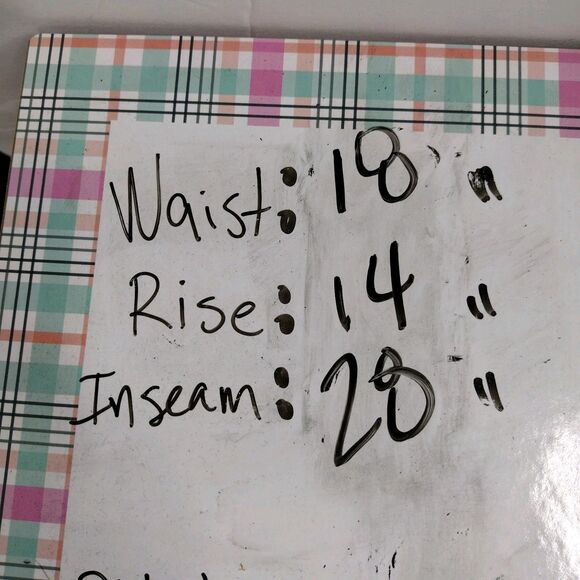 Waist: 18"
Rise: 14"
Inseam: 28"